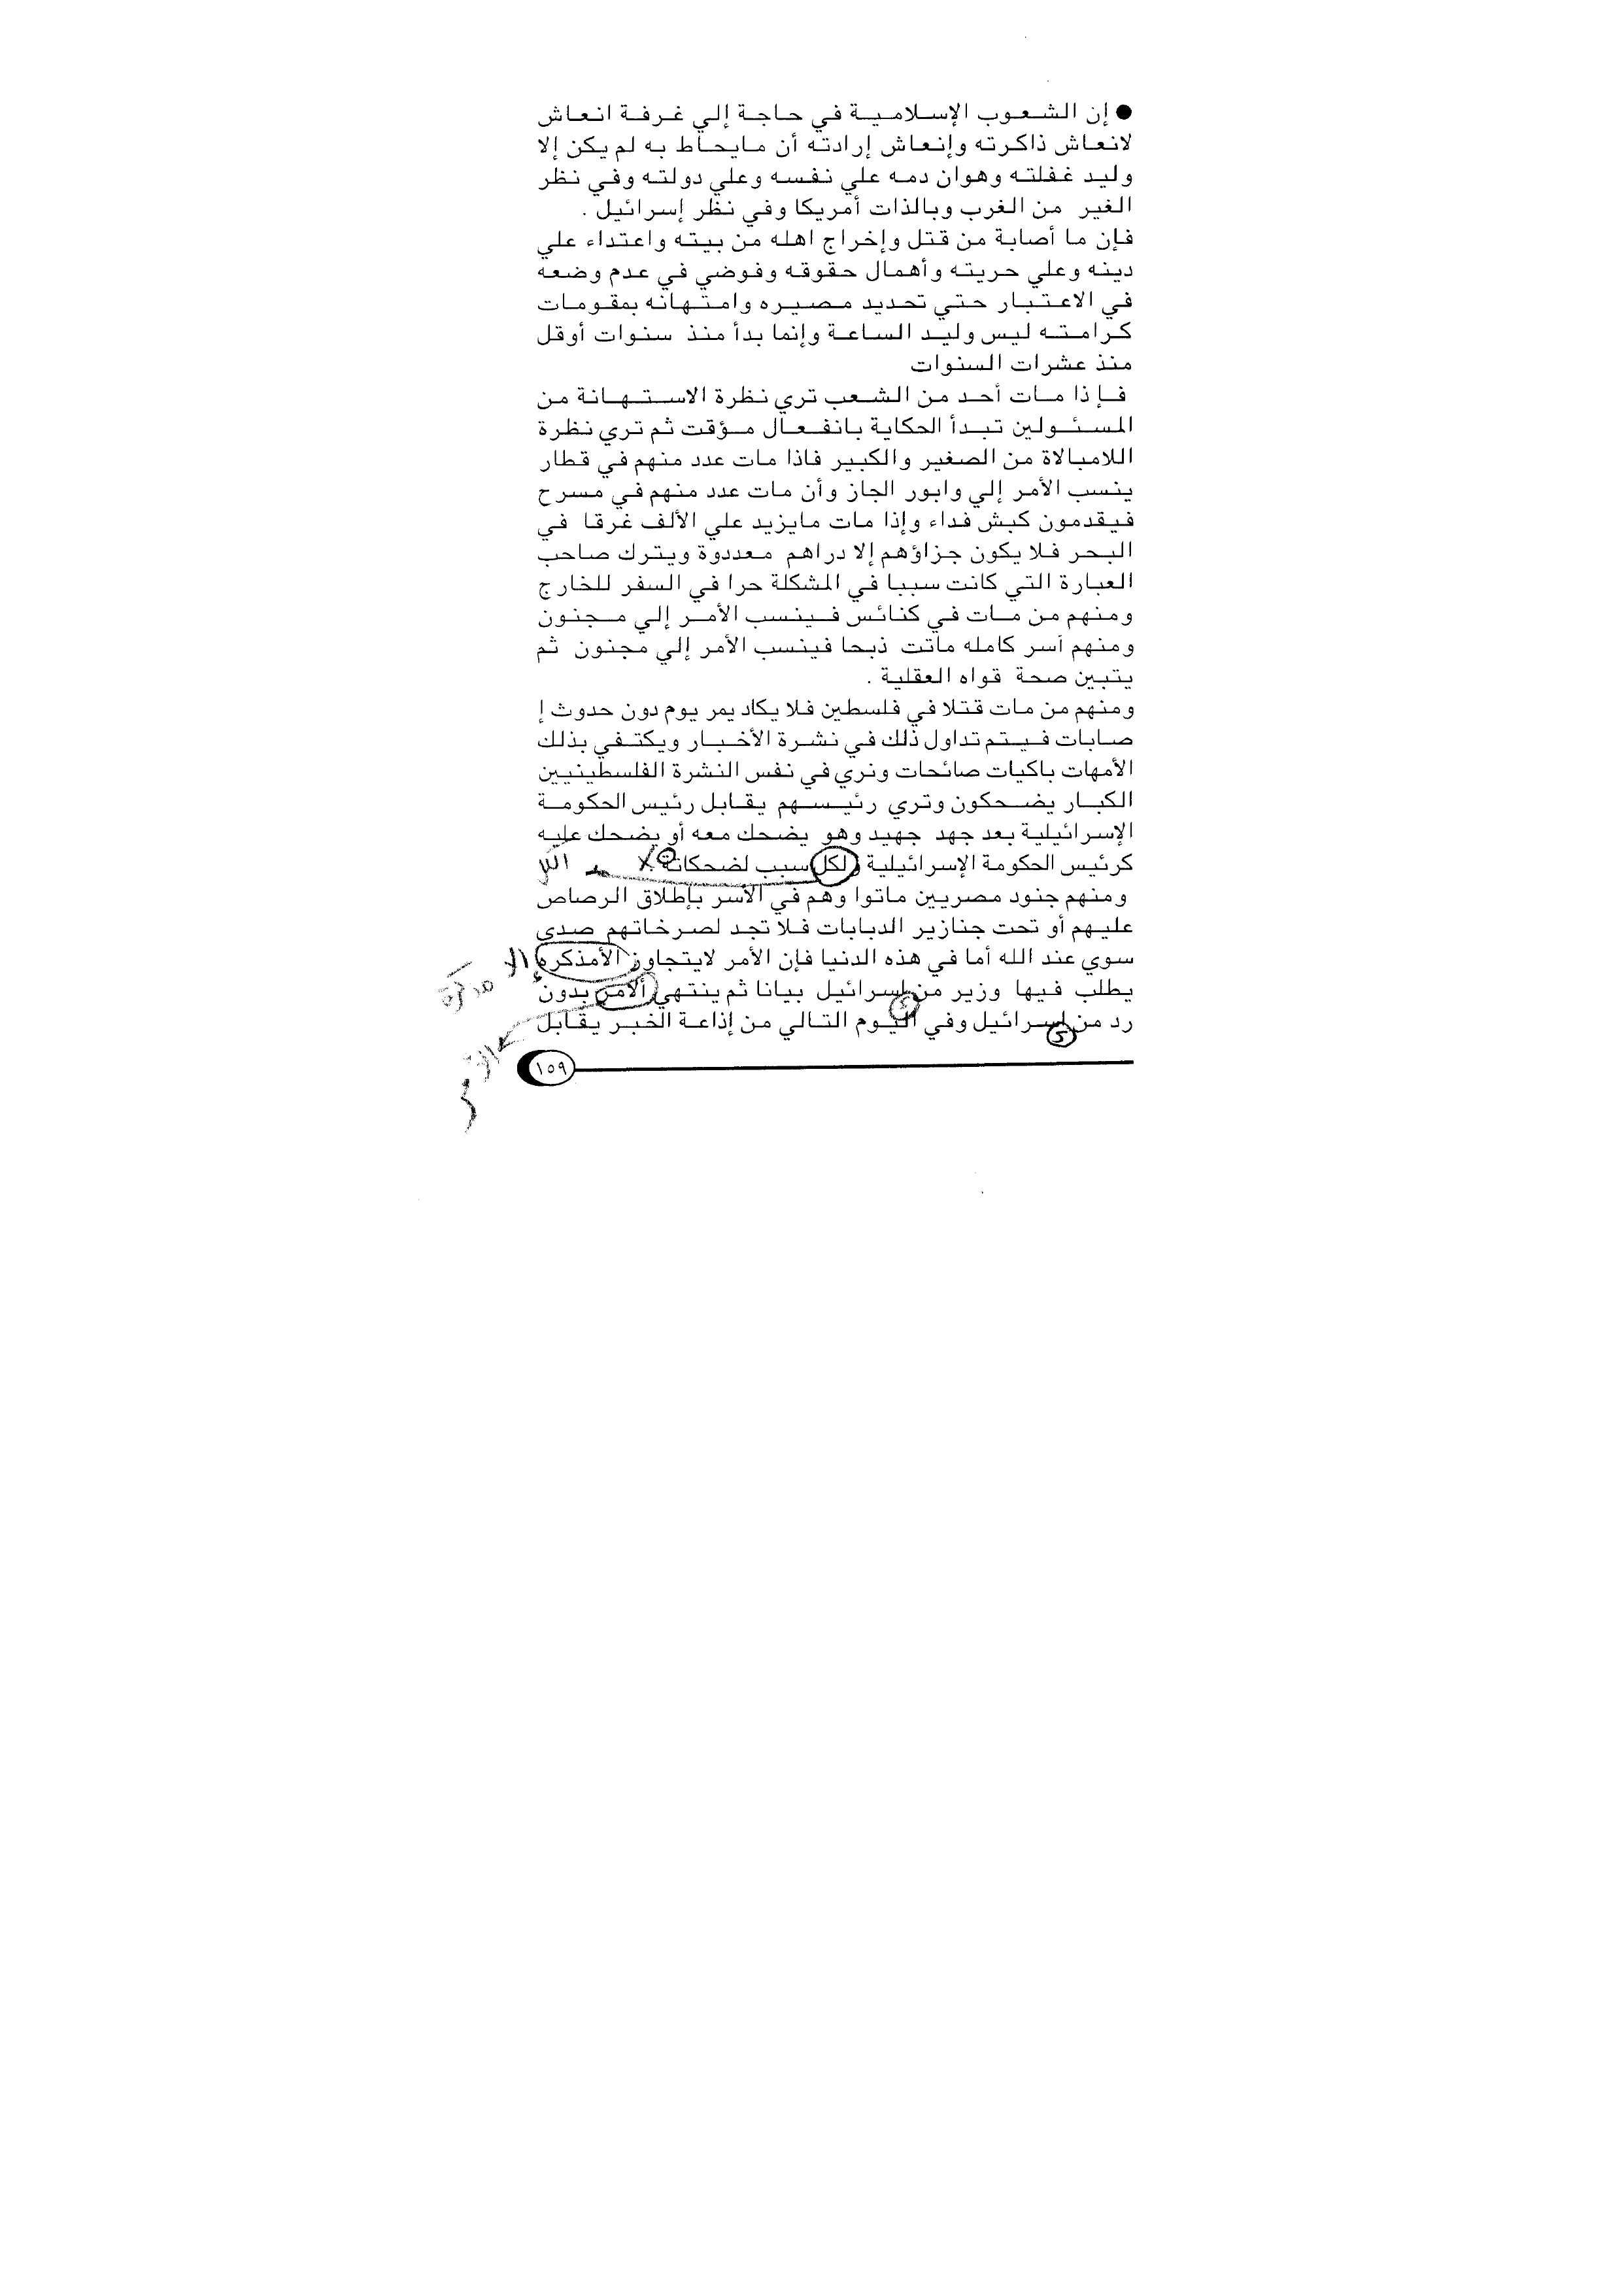 ● إن الشعوب الإسلامية في حاجة إلي غرفة انعاش
لانعاش ذاكرته وإنعاش إرادته أن مايحاط به لم يكن إلا
وليد غفلته وهوان دمه علي نفسه وعلي دولته وفي نظر
الغير من الغرب وبالذات أمريكا وفي نظر إسرائيل .
فإن ما أصابة من قتل وإخراج اهله من بيته واعتداء علي
دينه وعلي حريته وأهمال حقوقه وفوضي في عدم وضعه
في الاعتبار حتي تحديد مصيره وامتهانه بمقومات
كرامته ليس وليد الساعة وإنما بدأ منذ سنوات أوقل
منذ عشرات السنوات
فإذا مات أحد من الشعب تري نظرة الاستهانة من
المسئولين تبدأ الحكاية بانفعال مؤقت ثم تري نظرة
اللامبالاة من الصغير والكبير فاذا مات عدد منهم في قطار
ينسب الأمر إلي وابور الجاز وأن مات عدد منهم في مسرح
فيقدمون كبش فداء وإذا مات مايزيد علي الألف غرقا في
البحر فلا يكون جزاؤهم إلا دراهم معددوة ويترك صاحب
العبارة التي كانت سببا في المشكلة حرا في السفر للخارج
ومنهم من مات في كنائس فينسب الأمر إلي مجنون
ومنهم أسر كامله ماتت ذبحا فينسب الأمر إلي مجنون ثم
يتبين صحة قواه العقلية .
ومنهم من مات قتلا في فلسطين فلا يكاد يمر يوم دون حدوث إ
صابات فيتم تداول ذلك في نشرة الأخبار ويكتفي بذلك
الأمهات باكيات صائحات ونري في نفس النشرة الفلسطينيين
الكبار يضحكون وتري رئيسهم يقابل رئيس الحكومة
الإسرائيلية بعد جهد جهيد وهو يضحك معه أو يضحك عليه
كرئيس الحكومة الإسرائيلية ولكل سبب لضحكاتة
ومنهم جنود مصريين ماتوا وهم في الأسر بإطلاق الرصاص
عليهم أو تحت جنازير الدبابات فلا تجد لصرخاتهم صدي
سوي عند الله أما في هذه الدنيا فإن الأمر لايتجاوز الأمذكره إلا
يطلب فيها وزير من إسرائيل بيانا ثم ينتهي ألامر بدون مذكرة
رد من إسرائيل وفي اليوم التالي من إذاعة الخبر يقابل
١٥٩